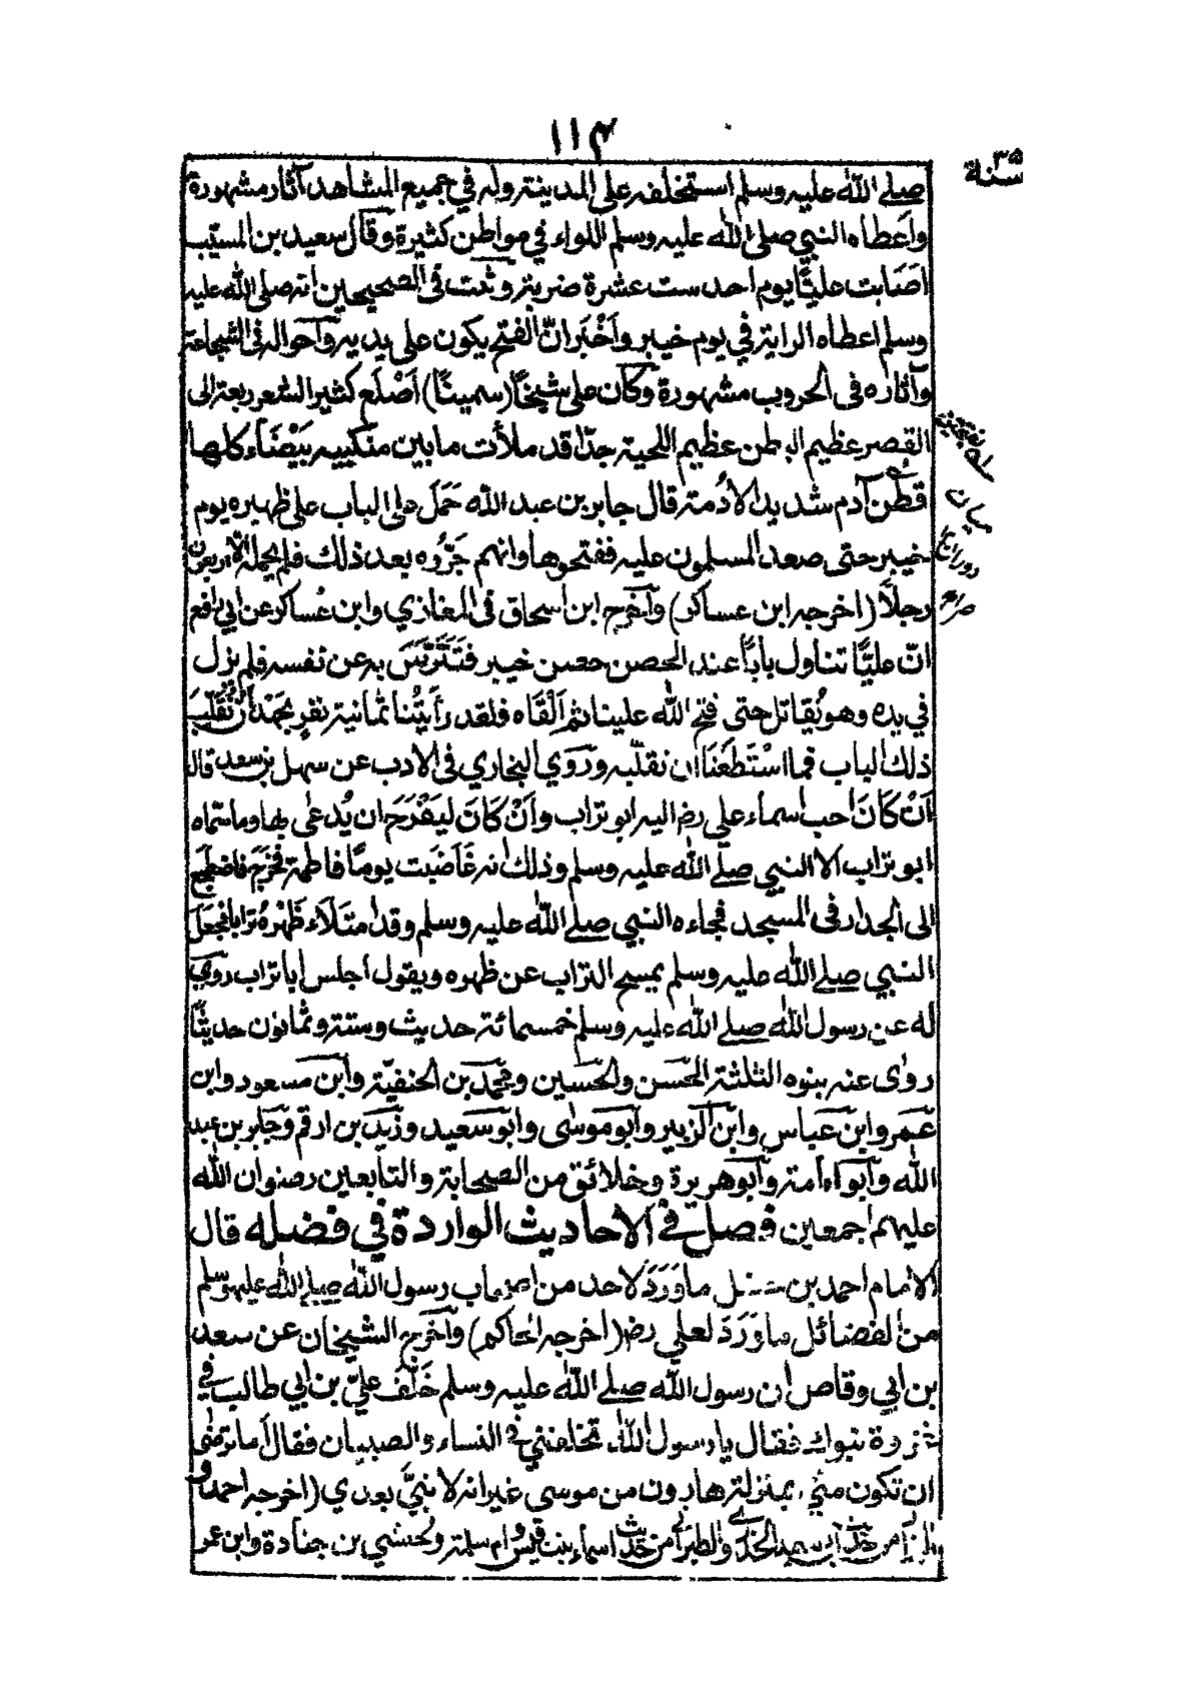 ١١٤
سنة ٣٥
صلے الله عليه وسلم استخلفه على المدينة وله في جميع المشاهد آثار مشهورة
واَعطاه النبي صلى الله عليه وسلم اللواء في مواطن كثيرة وقال سعيد بن المسيّب
اصَابت عليًّا يوم احد ست عشرة ضربة وثبت فى الصحيحين انه صلى الله عليه
وسلم اعطاه الراية في يوم خيبر واَخْبَر انّ الفتح يكون على يديه وآحواله فى الشجاعة
وآثاره فى الحروب مشهورة وكان على شيخًا (سمينًا) اَصْلَع كثير الشعر ربعة الى
القصر عظيم البطن عظيم اللحية جدًّا قد ملأت ما بين منكبيه بَيْضَاء كلها
قطن آدم شديد الاُدمة قال جابر بن عبد الله حَمَل على الباب على ظهره يوم
خيبر حتى صعد المسلمون عليه ففتحوها وانهم جَرُّوه بعد ذلك فلم يحمله الا اربعون
رجلاً (اخرجه ابن عساكر) واَخرج ابن اسحاق فى المغازي وابن عساكر عن ابي رافع
انّ عليًّا تناول بابًا عند الحصن حصن خيبر فتَتَرَّسَ به عن نفسه فلم يزل
في يده وهو يُقاتل حتى فتح الله علينا ثم اَلْقَاه فلقد رأَيتُنا ثمانية نفرٍ نجهَد اَن نُقَلِّبَ
ذلك الباب فما اسْتَطَعْنَا ان نقلّبه ورَوَي البخاري فى الادب عن سهل بن سعد قال
اَنْ كَانَ احب اسماء علي رض اليه ابو تراب واَنْ كَانَ لَيَفْرَحَ ان يُدعٰى بها وما سمّاه
ابو تراب الا النبي صلے الله عليه وسلم وذلك انه غَاضَبَت يومًا فاطمة فخرج فاضطجع
الى الجدار فى المسجد فجاءه النبي صلے الله عليه وسلم وقد امتلَاَء ظَهْرُهُ ترابا فجعَلَ
النبي صلے الله عليه وسلم يمسح التراب عن ظهره ويقول اجلس ابا تراب روي
له عن رسول الله صلے الله عليه وسلم خمسمائة حديث وستة وثمانون حديثًا
روٰى عنه بنوه الثلثة الحَسَن والحُسَين ومحمد بن الحنفيّة وابن مسعود وابن
عمر وابن عباس وابن الزبير وابو موسٰى وابو سعيد وزيد بن ارقم وجابر بن عبد
الله وابو امامة وابو هريرة وخلائق من الصحابة والتابعين رضوان الله
عليهم اجمعين فصل في الاحاديث الواردة في فضله قال
الامام احمد بن حنبل ما وَرَدَ لاحد من اصحاب رسول الله صلے الله عليه وسلم
من الفضائل ما وَرَدَ لعلي رض (اخرجه الحاكم) واَخرج الشيخان عن سعد
بن ابي وقاص ان رسول الله صلے الله عليه وسلم خَلَّفَ عليَّ بن ابي طالب في
غزوة تبوك فقال يا رسول الله تخلفني في النساء والصبيان فقال اَما ترضٰى
ان تكون مني بمنزلة هارون من موسى غير انه لا نبيَّ بعدي (اخرجه احمد و
البزار من حديث ابي سعيد الخدري والطبراني من حديث اسماء بنت قيس وام سلمة وحبشي بن جنادة وابن عمر
ميان